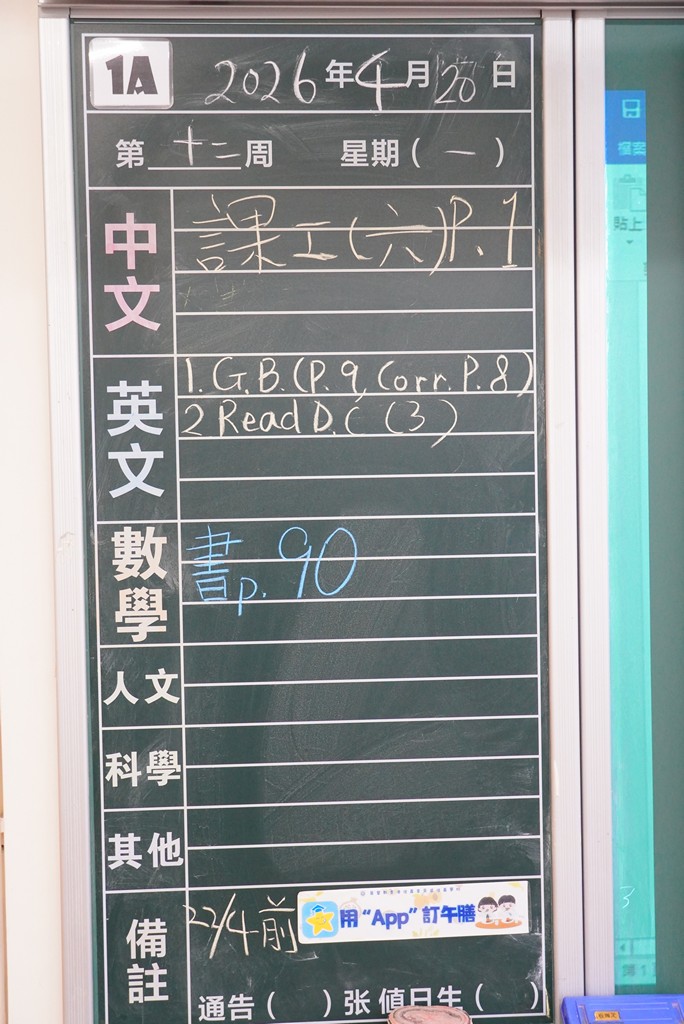 1A 2026年4月20日
第十二周 星期(一)
中文
課工(六)P.1
英文
1.G.B.(P.9,Corr.P.8)
2 Read D.C (3)
數學
書p.90
人文
科學
其他
備註
22/4前
用“App”訂午膳
通告( )张 值日生( )
檔案
貼上